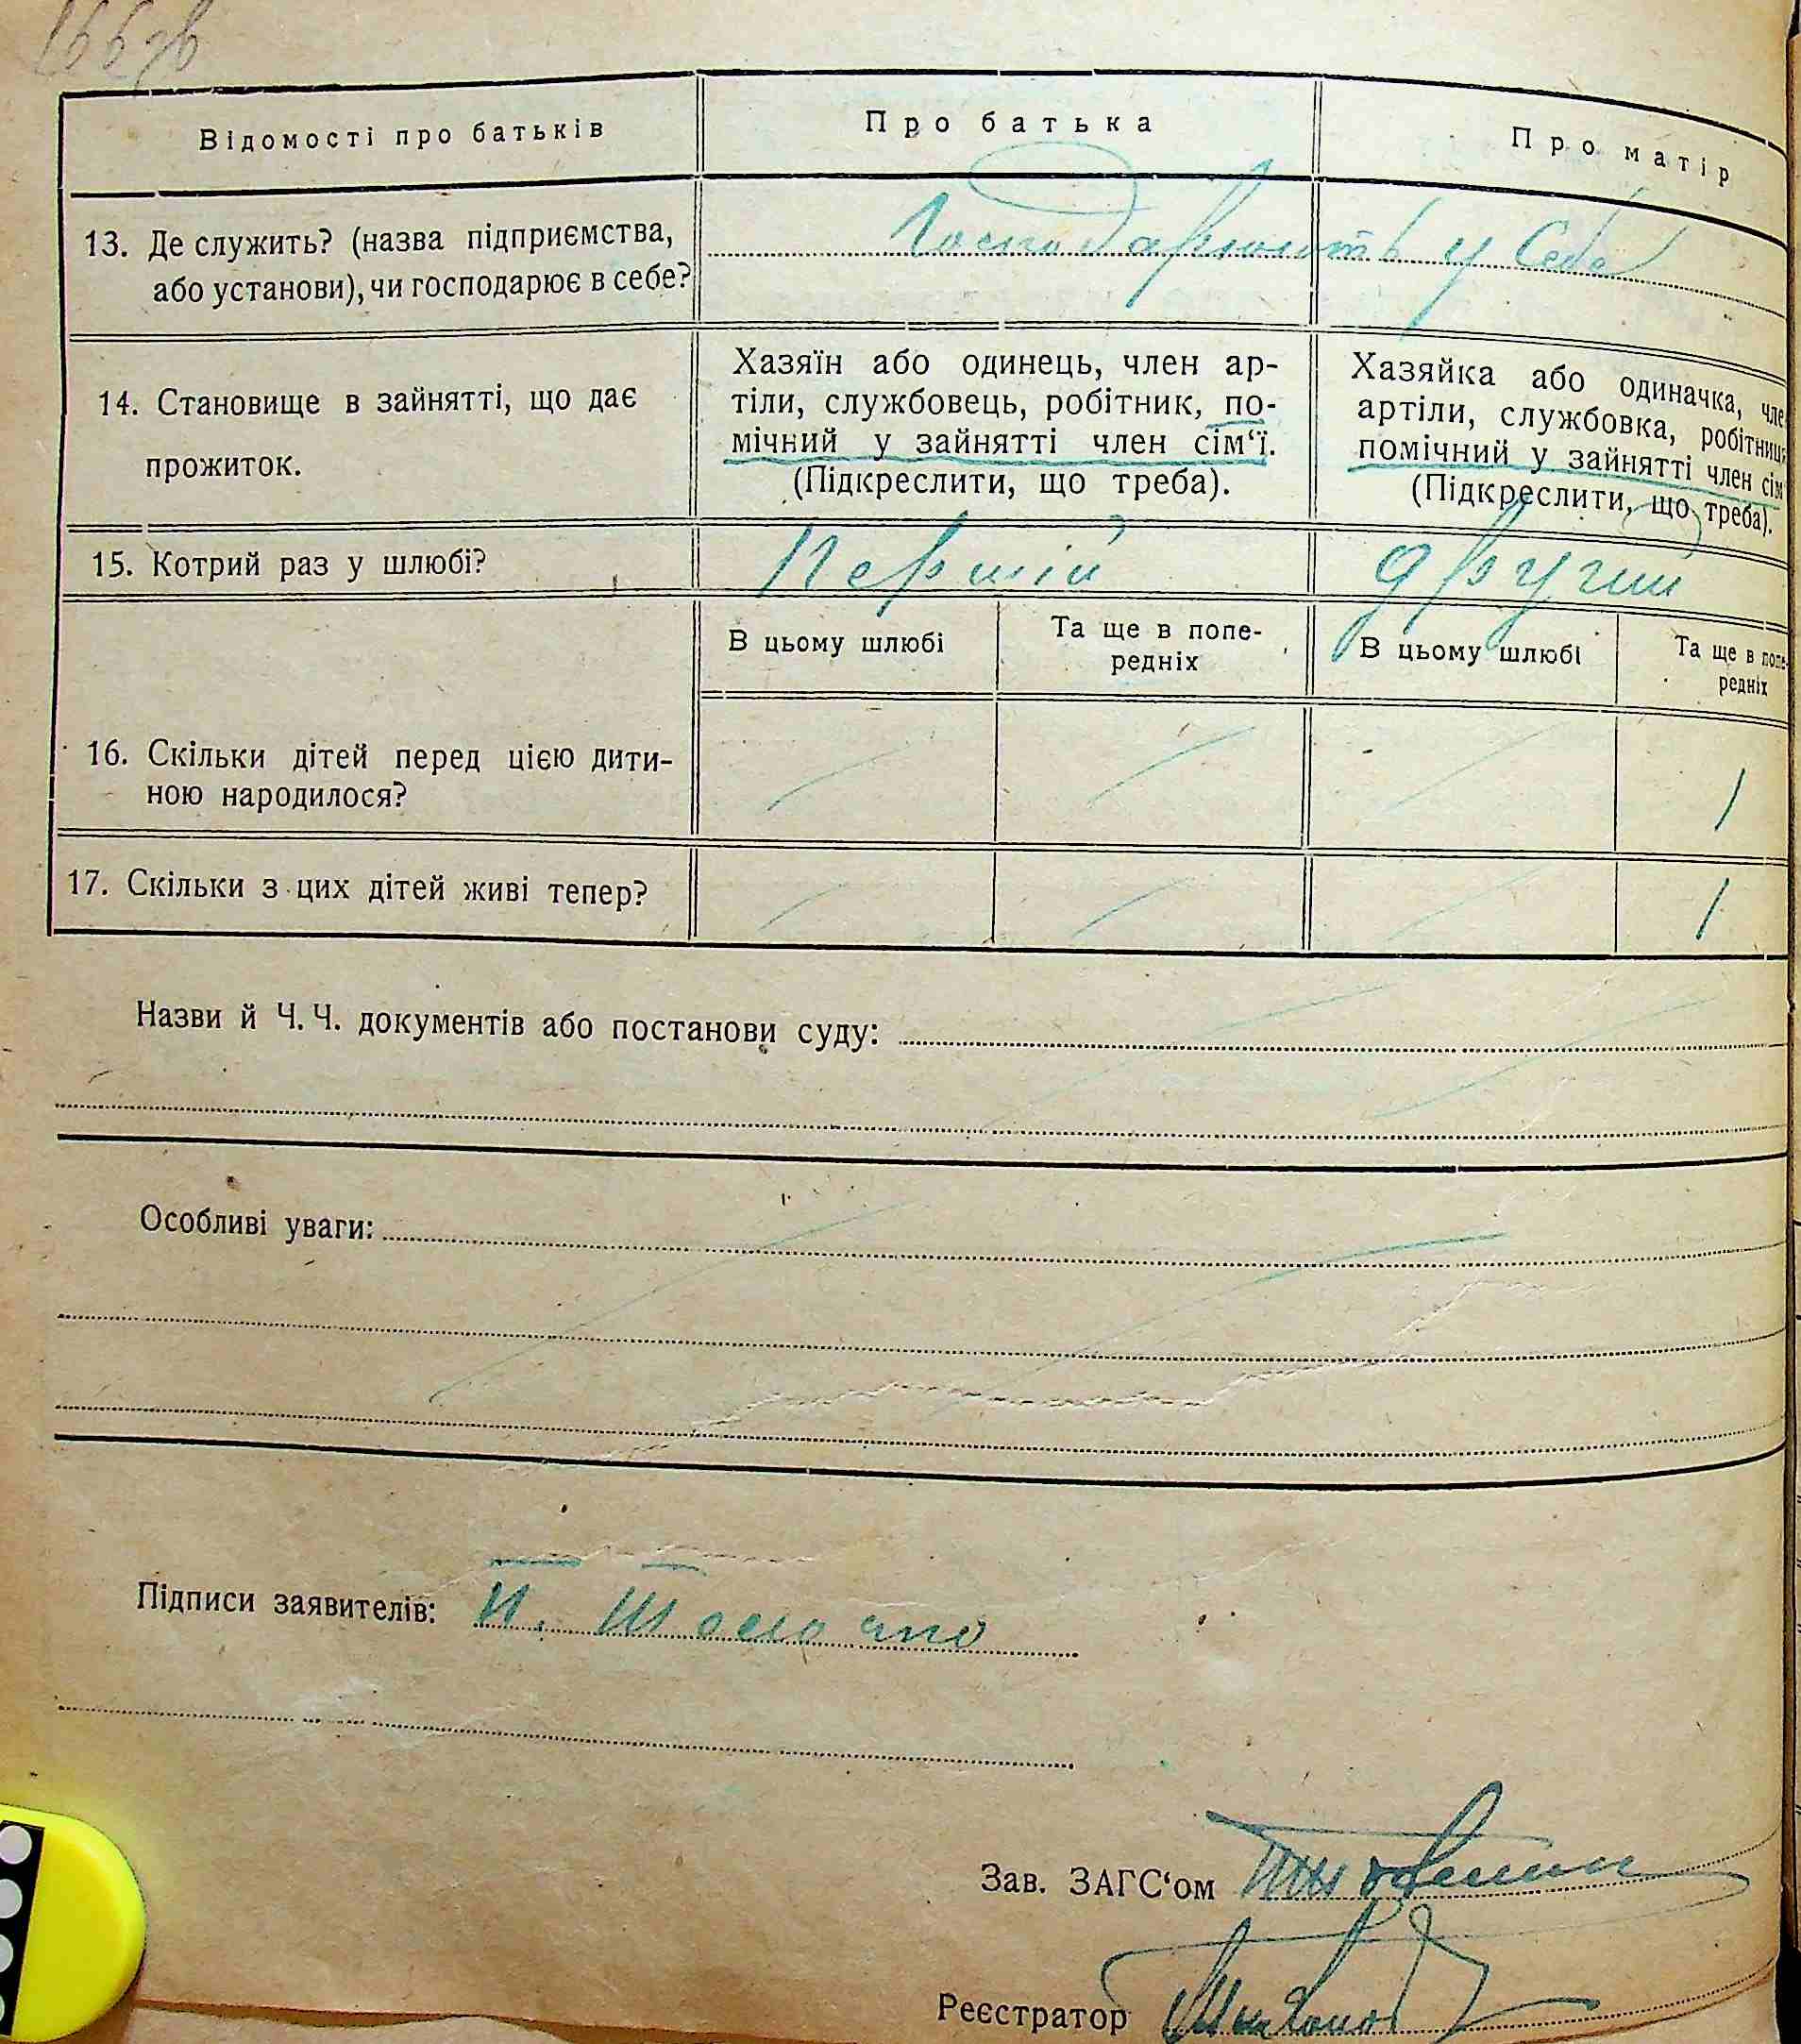 166зв
Відомості про батьків
Про батька
Про матір
13. Де служить? (назва підприємства,
або установи), чи господарює в себе?
Господарюють у себе
14. Становище в зайнятті, що дає
прожиток.
Хазяїн або одинець, член ар-
тіли, службовець, робітник, по-
мічний у зайнятті член сім‘ї.
(Підкреслити, що треба).
Хазяйка або одиначка, чле
артіли, службовка, робітниц
помічний у зайнятті член сім
(Підкреслити, що треба).
15. Котрий раз у шлюбі?
Першій
другий
В цьому шлюбі
Та ще в попе-
редніх
В цьому шлюбі
Та ще в попе-
редніх
16. Скільки дітей перед цією дити-
ною народилося?
1
17. Скільки з цих дітей живі тепер?
1
Назви й Ч. Ч. документів або постанови суду:
Особливі уваги:
Підписи заявителів:
Зав. ЗАГС‘ом
Реєстратор